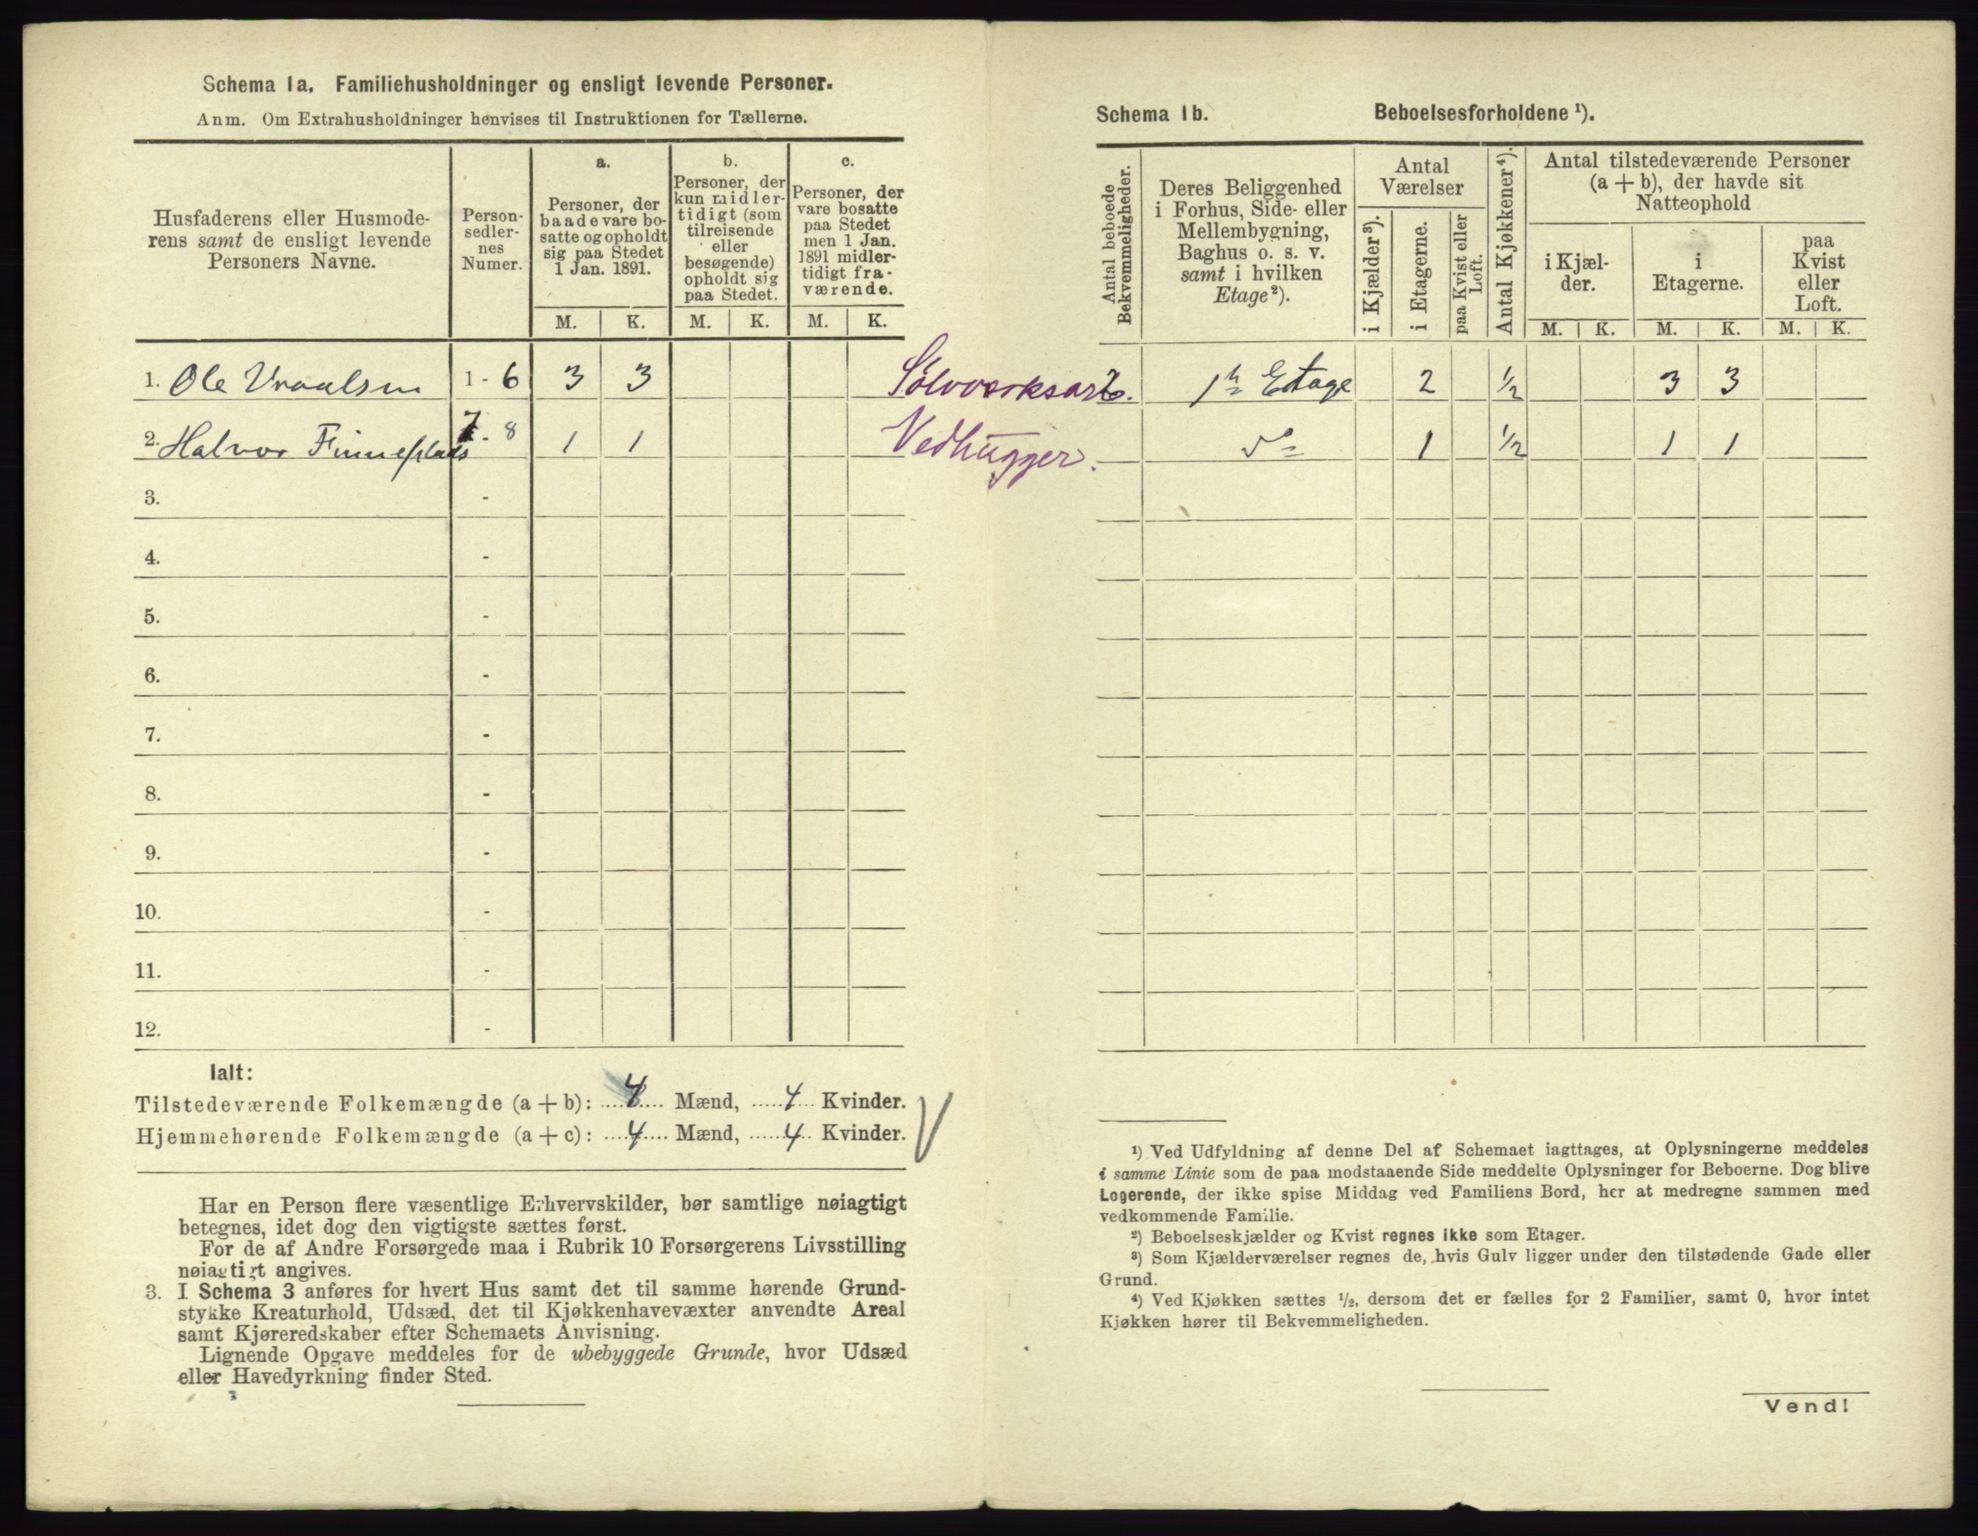 Schema 1a. Familiehusholdninger og ensligt levende Personer.
Anm. Om Extrahusholdninger henvises til Instruktionen for Tællerne.
Husfaderens eller Husmode-
rens samt de ensligt levende
Personers Navne.
Person-
sedler-
nes
Numer.
a.
Personer, der
baade vare bo-
satte og opholdt
sig paa Stedet
1 Jan. 1891.
b.
Personer, der
kun midler-
tidigt (som
tilreisende
eller
besøgende)
opholdt sig
paa Stedet.
c.
Personer, der
vare bosatte
paa Stedet
men 1 Jan.
1891 midler-
tidigt fra-
værende.
M. K. M. K. M. K.
1. Ole Vraalsen 1 - 6 3 3
2. Halvor Finneplads 7 - 8 1 1
3. -
4. -
5. -
6. -
7. -
8. -
9. -
10. -
11. -
12. -
Ialt:
Tilstedeværende Folkemængde (a + b): 4 Mænd, 4 Kvinder.
Hjemmehørende Folkemængde (a + c): 4 Mænd, 4 Kvinder.
Har en Person flere væsentlige Erhvervskilder, bør samtlige nøiagtigt
betegnes, idet dog den vigtigste sættes først.
For de af Andre Forsørgede maa i Rubrik 10 Forsørgerens Livsstilling
nøiagtigt angives.
3. I Schema 3 anføres for hvert Hus samt det til samme hørende Grund-
stykke Kreaturhold, Udsæd, det til Kjøkkenhavevæxter anvendte Areal
samt Kjøreredskaber efter Schemaets Anvisning.
Lignende Opgave meddeles for de ubebyggede Grunde, hvor Udsæd
eller Havedyrkning finder Sted.
Schema 1b. Beboelsesforholdene ¹).
Antal beboede
Bekvemmeligheder.
Deres Beliggenhed
i Forhus, Side- eller
Mellembygning,
Baghus o. s. v.
samt i hvilken
Etage²).
Antal
Værelser
i Kjælder³).
i Etagerne.
paa Kvist eller
Loft.
Antal Kjøkkener⁴).
Antal tilstedeværende Personer
(a + b), der havde sit
Natteophold
i Kjæl-
der.
i
Etagerne.
paa
Kvist
eller
Loft.
M. K. M. K. M. K.
Sølvverksarb. 2 1ste Etage 2 ½ 3 3
Vedhugger. do 1 ½ 1 1
¹) Ved Udfyldning af denne Del af Schemaet iagttages, at Oplysningerne meddeles
i samme Linie som de paa modstaaende Side meddelte Oplysninger for Beboerne. Dog blive
Logerende, der ikke spise Middag ved Familiens Bord, her at medregne sammen med
vedkommende Familie.
²) Beboelseskjælder og Kvist regnes ikke som Etager.
³) Som Kjælderværelser regnes de, hvis Gulv ligger under den tilstødende Gade eller
Grund.
⁴) Ved Kjøkken sættes ½, dersom det er fælles for 2 Familier, samt 0, hvor intet
Kjøkken hører til Bekvemmeligheden.
Vend!